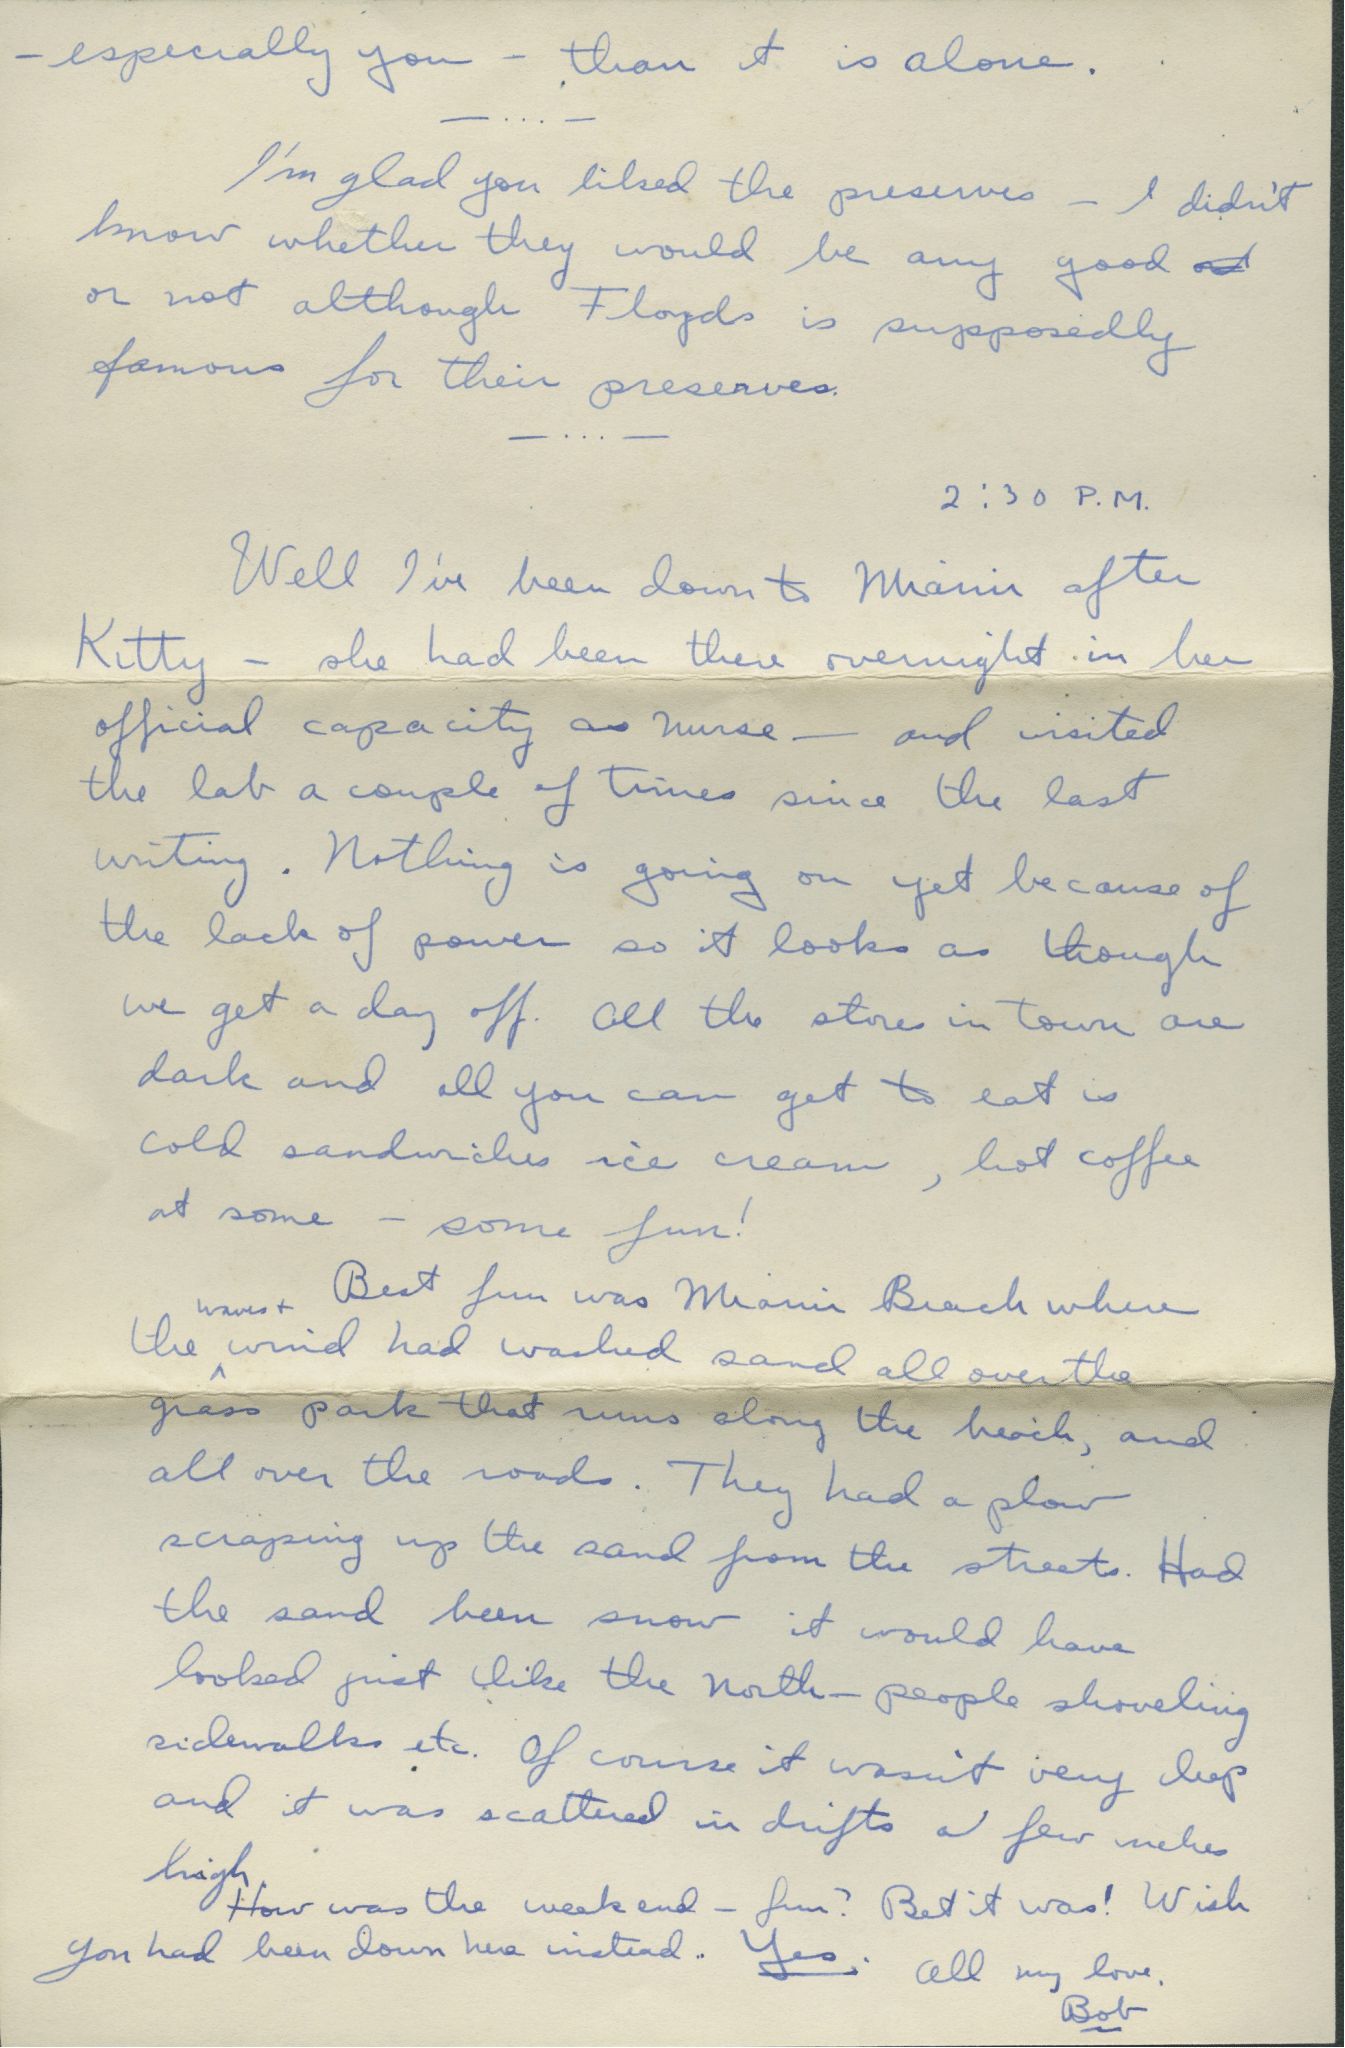 - especially you - than it is alone.
— ... —
I'm glad you liked the preserves - I didn't
know whether they would be any good
or not although Floyds is supposedly
famous for their preserves.
— ... —
2:30 P.M.
Well I've been down to Miami after
Kitty - she had been there overnight in her
official capacity as nurse - and visited
the lab a couple of times since the last
writing. Nothing is going on yet because of
the lack of power so it looks as though
we get a day off. All the stores in town are
dark and all you can get to eat is
cold sandwiches ice cream, hot coffee
at some - some fun!
Best fun was Miami Beach where
the waves + wind had washed sand all over the
grass park that runs along the beach, and
all over the roads. They had a plow
scraping up the sand from the streets. Had
the sand been snow it would have
looked just like the North - people shoveling
sidewalks etc. Of course it wasn't very deep
and it was scattered in drifts a few inches
high.
How was the weekend - fun? Bet it was! Wish
you had been down here instead. Yes.
All my love,
Bob